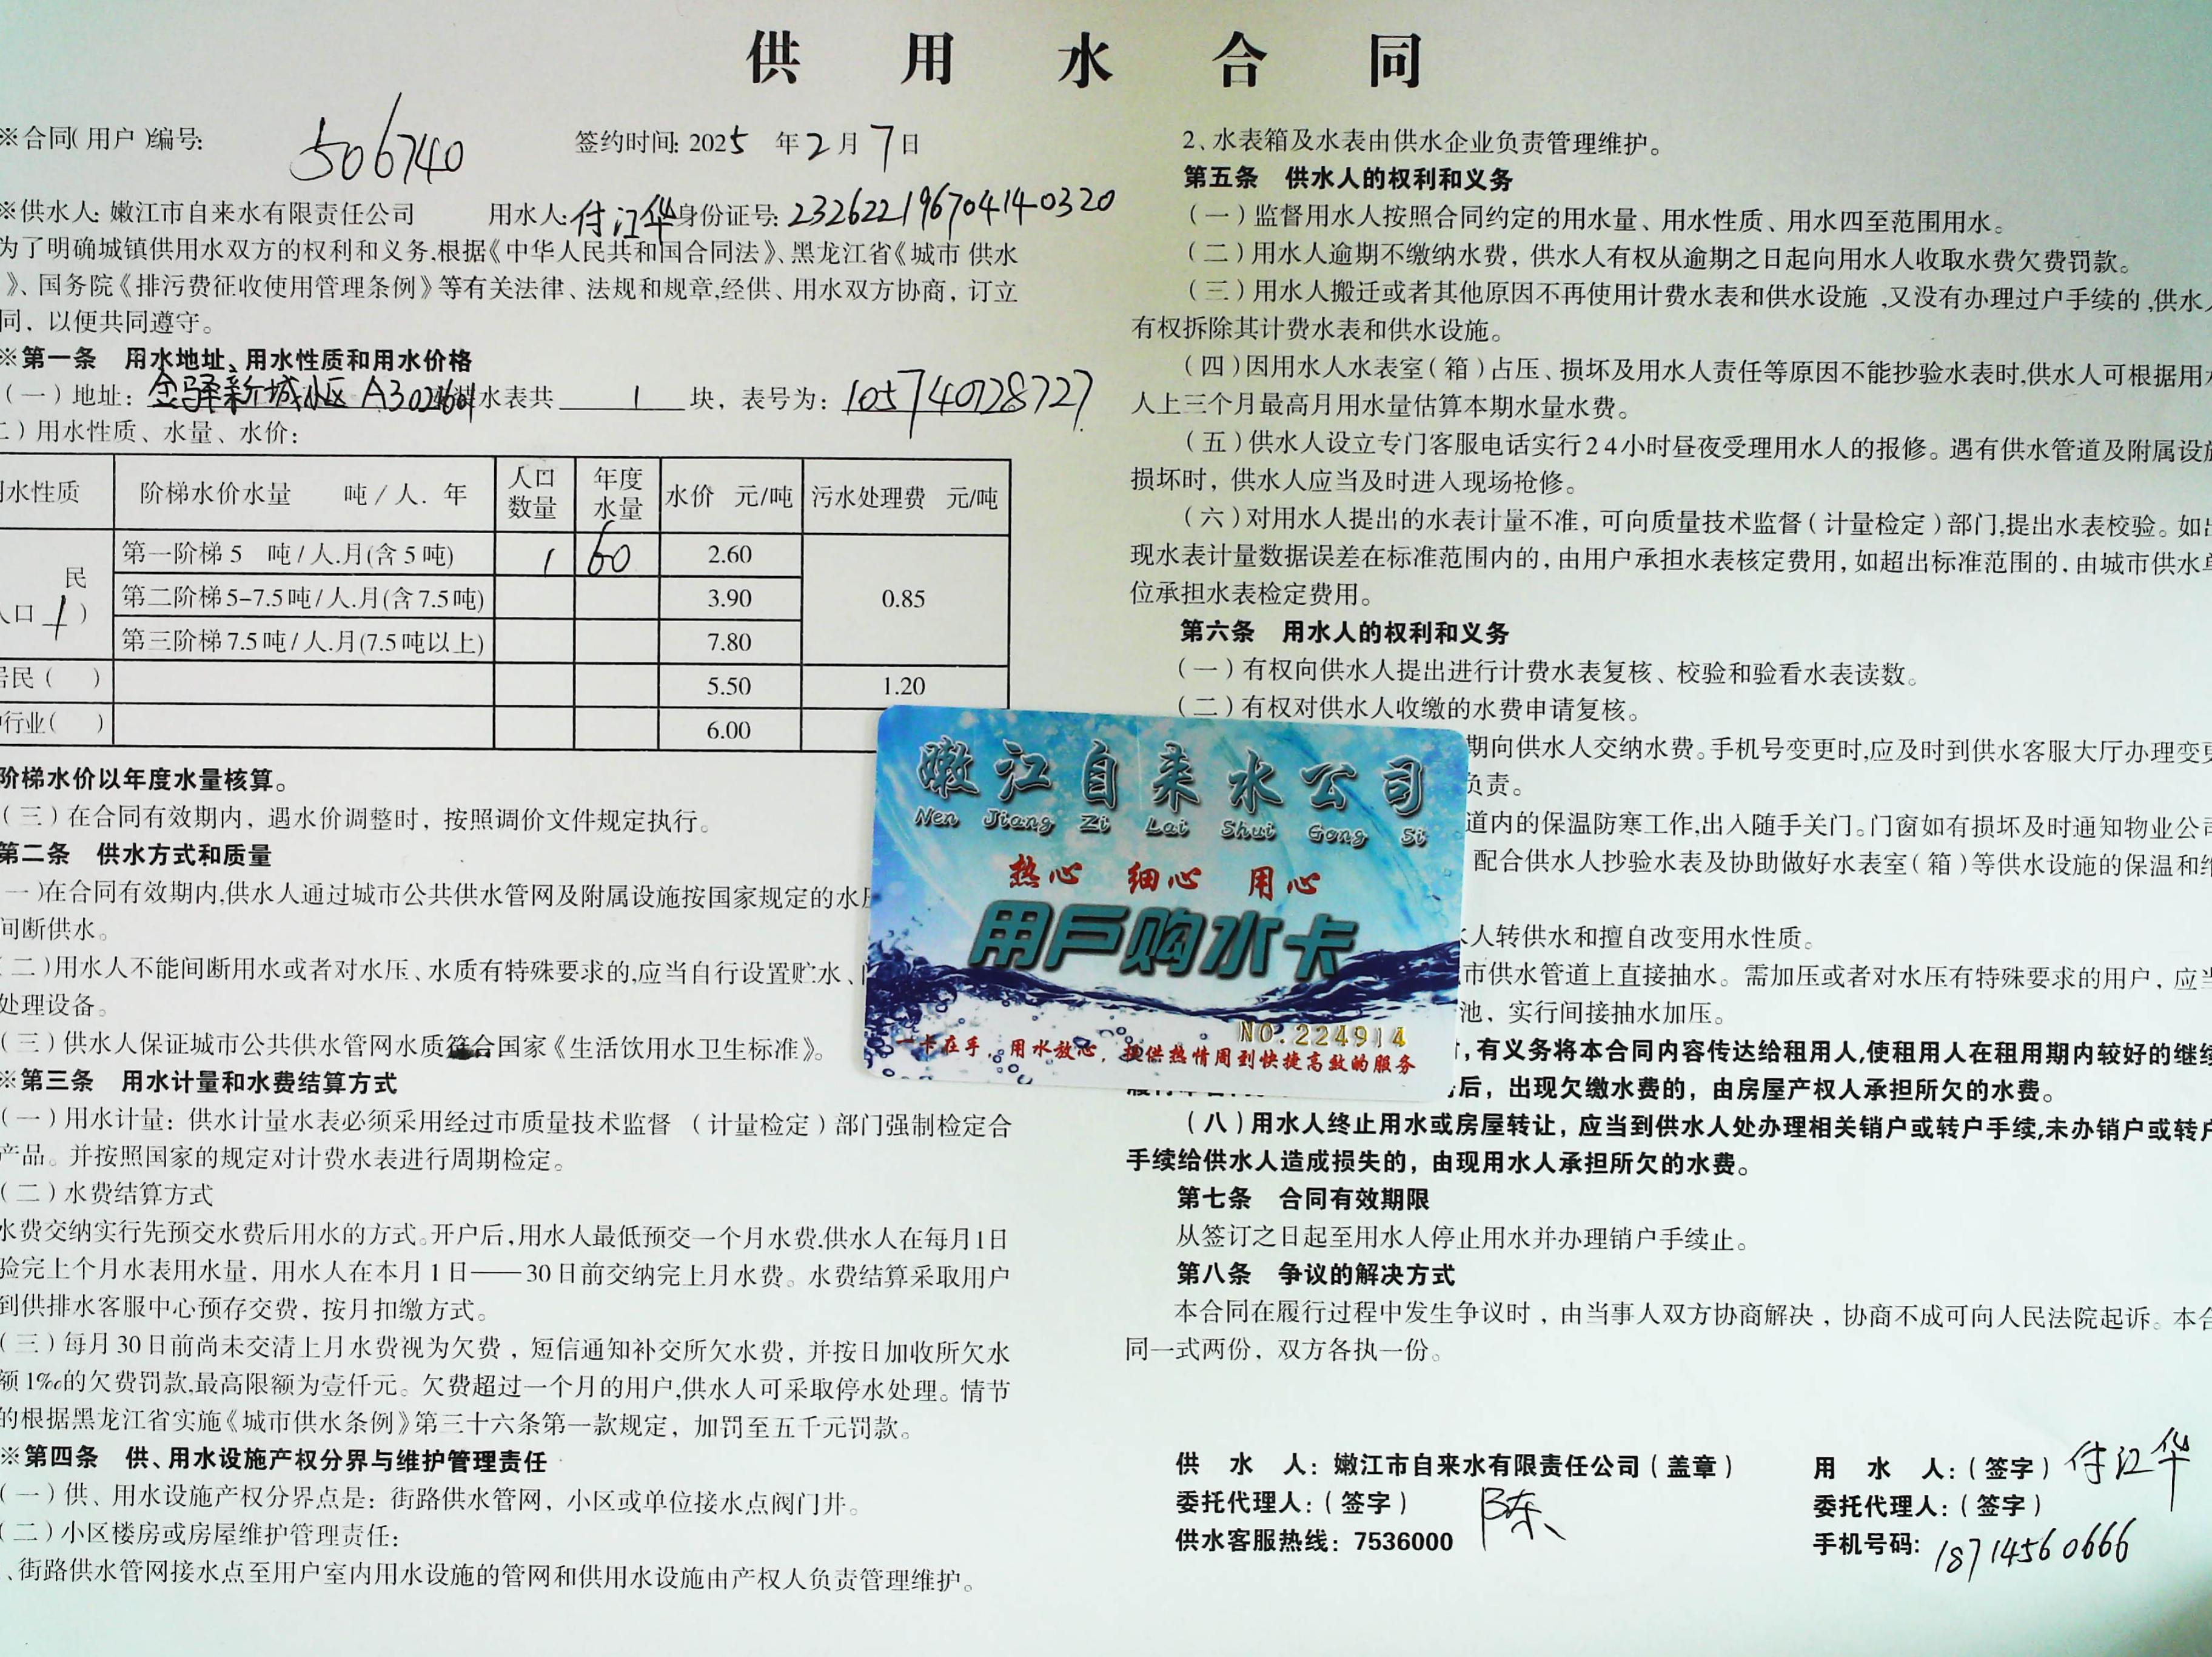 供用水合同
※合同(用户)编号: 506740 签约时间: 2025年2月7日
※供水人: 嫩江市自来水有限责任公司 用水人: 付江华 身份证号: 232622196704140320
为了明确城镇供用水双方的权利和义务,根据《中华人民共和国合同法》、黑龙江省《城市 供水
》、国务院《排污费征收使用管理条例》等有关法律、法规和规章,经供、用水双方协商，订立
同，以便共同遵守。
※第一条 用水地址、用水性质和用水价格
(一)地址: 金驿新城小区 A302601 水表共 1 块，表号为: 105740728727
二)用水性质、水量、水价:
水性质 阶梯水价水量 吨/人. 年 人口数量 年度水量 水价 元/吨 污水处理费 元/吨
民
人口 1 )
第一阶梯 5 吨/人.月(含 5 吨) 1 60 2.60 0.85
第二阶梯 5-7.5 吨/人.月(含 7.5 吨) 3.90
第三阶梯 7.5 吨/人.月(7.5 吨以上) 7.80
居民( ) 5.50 1.20
行业( ) 6.00
阶梯水价以年度水量核算。
(三)在合同有效期内，遇水价调整时，按照调价文件规定执行。
第二条 供水方式和质量
一)在合同有效期内,供水人通过城市公共供水管网及附属设施按国家规定的水
间断供水。
(二)用水人不能间断用水或者对水压、水质有特殊要求的,应当自行设置贮水、
处理设备。
(三)供水人保证城市公共供水管网水质符合国家《生活饮用水卫生标准》。
※第三条 用水计量和水费结算方式
(一)用水计量: 供水计量水表必须采用经过市质量技术监督 (计量检定)部门强制检定合
产品。并按照国家的规定对计费水表进行周期检定。
(二)水费结算方式
水费交纳实行先预交水费后用水的方式。开户后,用水人最低预交一个月水费,供水人在每月1日
验完上个月水表用水量，用水人在本月 1 日——30 日前交纳完上月水费。水费结算采取用户
到供排水客服中心预存交费，按月扣缴方式。
(三)每月 30 日前尚未交清上月水费视为欠费，短信通知补交所欠水费，并按日加收所欠水
额 1‰的欠费罚款,最高限额为壹仟元。欠费超过一个月的用户,供水人可采取停水处理。情节
的根据黑龙江省实施《城市供水条例》第三十六条第一款规定，加罚至五千元罚款。
※第四条 供、用水设施产权分界与维护管理责任
(一)供、用水设施产权分界点是: 街路供水管网，小区或单位接水点阀门井。
(二)小区楼房或房屋维护管理责任:
、街路供水管网接水点至用户室内用水设施的管网和供用水设施由产权人负责管理维护。
2、水表箱及水表由供水企业负责管理维护。
第五条 供水人的权利和义务
(一)监督用水人按照合同约定的用水量、用水性质、用水四至范围用水。
(二)用水人逾期不缴纳水费，供水人有权从逾期之日起向用水人收取水费欠费罚款。
(三)用水人搬迁或者其他原因不再使用计费水表和供水设施 ,又没有办理过户手续的,供水人
有权拆除其计费水表和供水设施。
(四)因用水人水表室(箱)占压、损坏及用水人责任等原因不能抄验水表时,供水人可根据用水
人上三个月最高月用水量估算本期水量水费。
(五)供水人设立专门客服电话实行24小时昼夜受理用水人的报修。遇有供水管道及附属设施
损坏时，供水人应当及时进入现场抢修。
(六)对用水人提出的水表计量不准，可向质量技术监督(计量检定)部门,提出水表校验。如出
现水表计量数据误差在标准范围内的，由用户承担水表核定费用，如超出标准范围的，由城市供水单
位承担水表检定费用。
第六条 用水人的权利和义务
(一)有权向供水人提出进行计费水表复核、校验和验看水表读数。
(二)有权对供水人收缴的水费申请复核。
期向供水人交纳水费。手机号变更时,应及时到供水客服大厅办理变更
负责。
道内的保温防寒工作,出入随手关门。门窗如有损坏及时通知物业公司
配合供水人抄验水表及协助做好水表室(箱)等供水设施的保温和维
水人转供水和擅自改变用水性质。
市供水管道上直接抽水。需加压或者对水压有特殊要求的用户，应当
池，实行间接抽水加压。
，有义务将本合同内容传达给租用人,使租用人在租用期内较好的继续
后，出现欠缴水费的，由房屋产权人承担所欠的水费。
(八)用水人终止用水或房屋转让，应当到供水人处办理相关销户或转户手续,未办销户或转户
手续给供水人造成损失的，由现用水人承担所欠的水费。
第七条 合同有效期限
从签订之日起至用水人停止用水并办理销户手续止。
第八条 争议的解决方式
本合同在履行过程中发生争议时，由当事人双方协商解决，协商不成可向人民法院起诉。本合
同一式两份，双方各执一份。
供 水 人: 嫩江市自来水有限责任公司(盖章) 用 水 人: (签字) 付江华
委托代理人: (签字) 陈 委托代理人: (签字)
供水客服热线: 7536000 手机号码: 18714560666
嫩江自来水公司
Nen Jiang Zi Lai Shui Gong Si
热心 细心 用心
用户购水卡
NO.224914
一卡在手，用水放心，提供热情周到快捷高效的服务